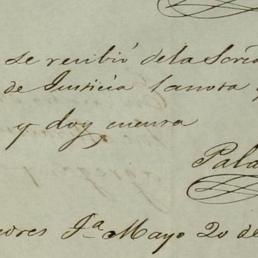 se recibió de la Scría
de Justicia la nota
y doy cuenta
Pala
ores Ja Mayo 20 de